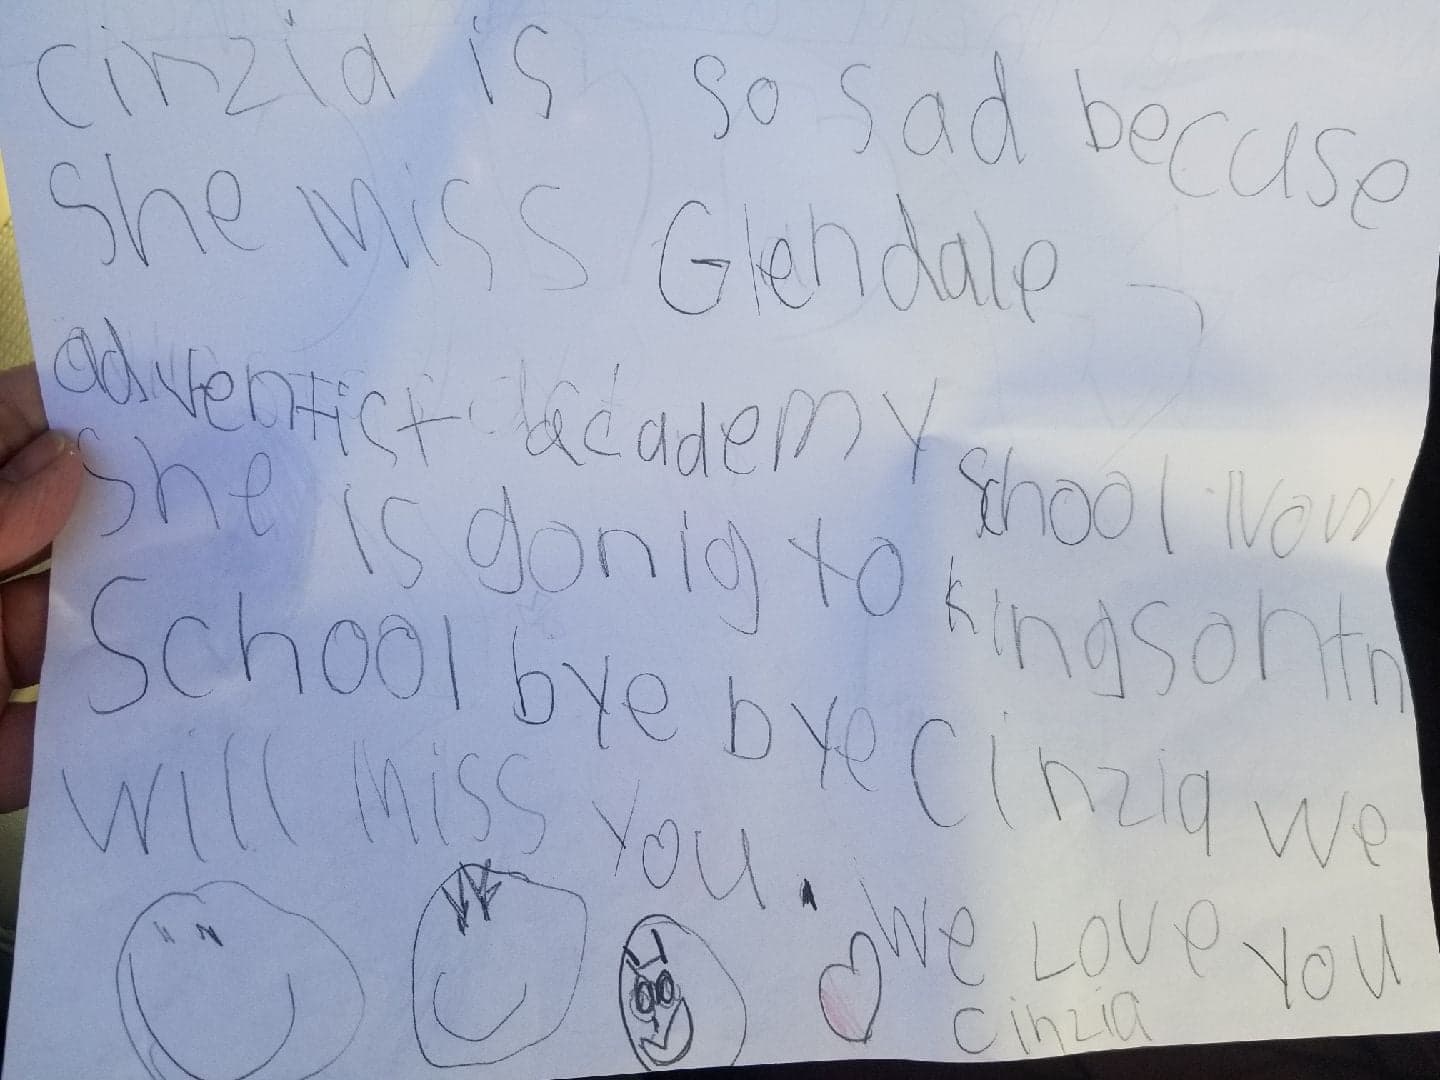 Cinzia is so sad becuse
She Miss Glendale
adventist academy School Now
She is gonig to kingsontn
School bye bye Cinzia we
Will Miss You.
We Love You
Cinzia